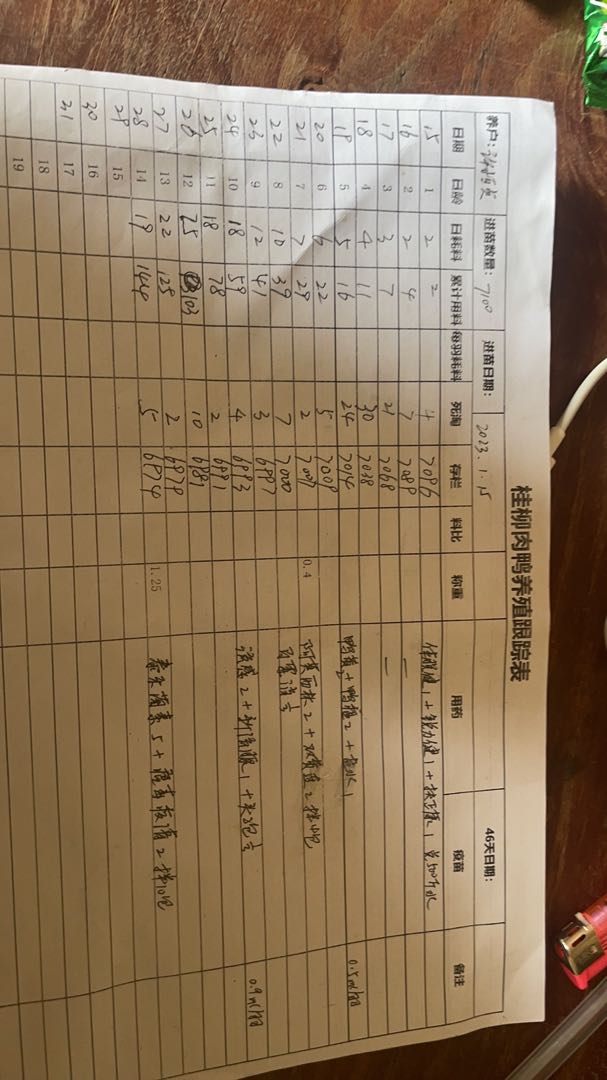 桂柳肉鸭养殖跟踪表
养户: 进苗数量: 7100 进苗日期: 2023.1.15 46天日期:
日期 日龄 日耗料 累计用料 每羽耗料 死淘 存栏 料比 称重 用药 疫苗 备注
15 1 2 2 4 7096 +锐力健1+扶正康1 兑500斤水
16 2 2 4 7 7089 —
17 3 3 7 21 7068 —
18 4 4 11 30 7038
19 5 5 16 24 7014 鸭黄2+鸭稚2+ 水1 0.5ml/羽
20 6 6 22 5 7009
21 7 7 29 2 7007 0.4 阿莫西林2+ 2拌4包
22 8 10 39 7 7000
23 9 12 41 3 6997 流感2+新 1+ 0.9ml/羽
24 10 18 59 4 6993
25 11 18 78 2 6991
26 12 25 103 10 6981
27 13 22 125 2 6979
28 14 19 144 5 6974 1.25 泰乐菌素5+ 2拌10包
29 15
30 16
31 17
18
19